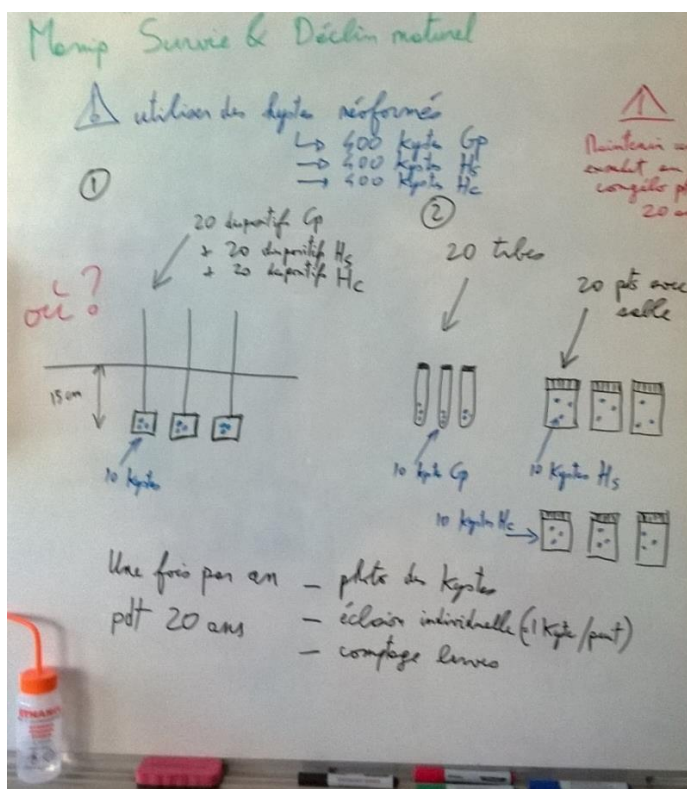 Manip Survie & Déclin naturel
! utiliser des kystes néoformés
↳ 400 kystes Gp
→ 400 kystes Hs
→ 400 kystes Hc
!
Maintenir
en
congélo
20 an
①
20 dispositifs Gp
+ 20 dispositifs Hs
+ 20 dispositifs Hc
où ?
15 cm
10 kystes
②
20 tubes
20 pots avec
sable
10 kystes Gp
10 kystes Hs
10 kystes Hc
Une fois par an
pdt 20 ans
- photo des kystes
- éclosion individuelle (1 kyste/puit)
- comptage larves
ETHANOL